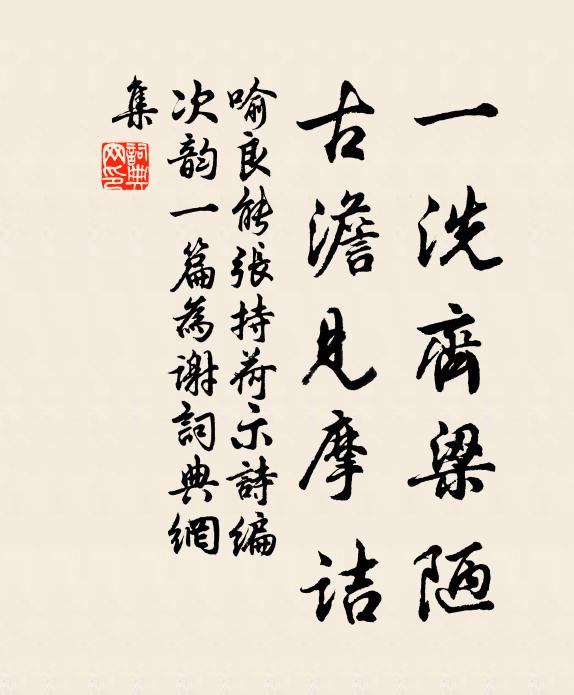 一洗齊梁陋
古澹見摩詰
喻良能張持荷示詩編
次韵一篇為謝詞典網
集
詞典网印